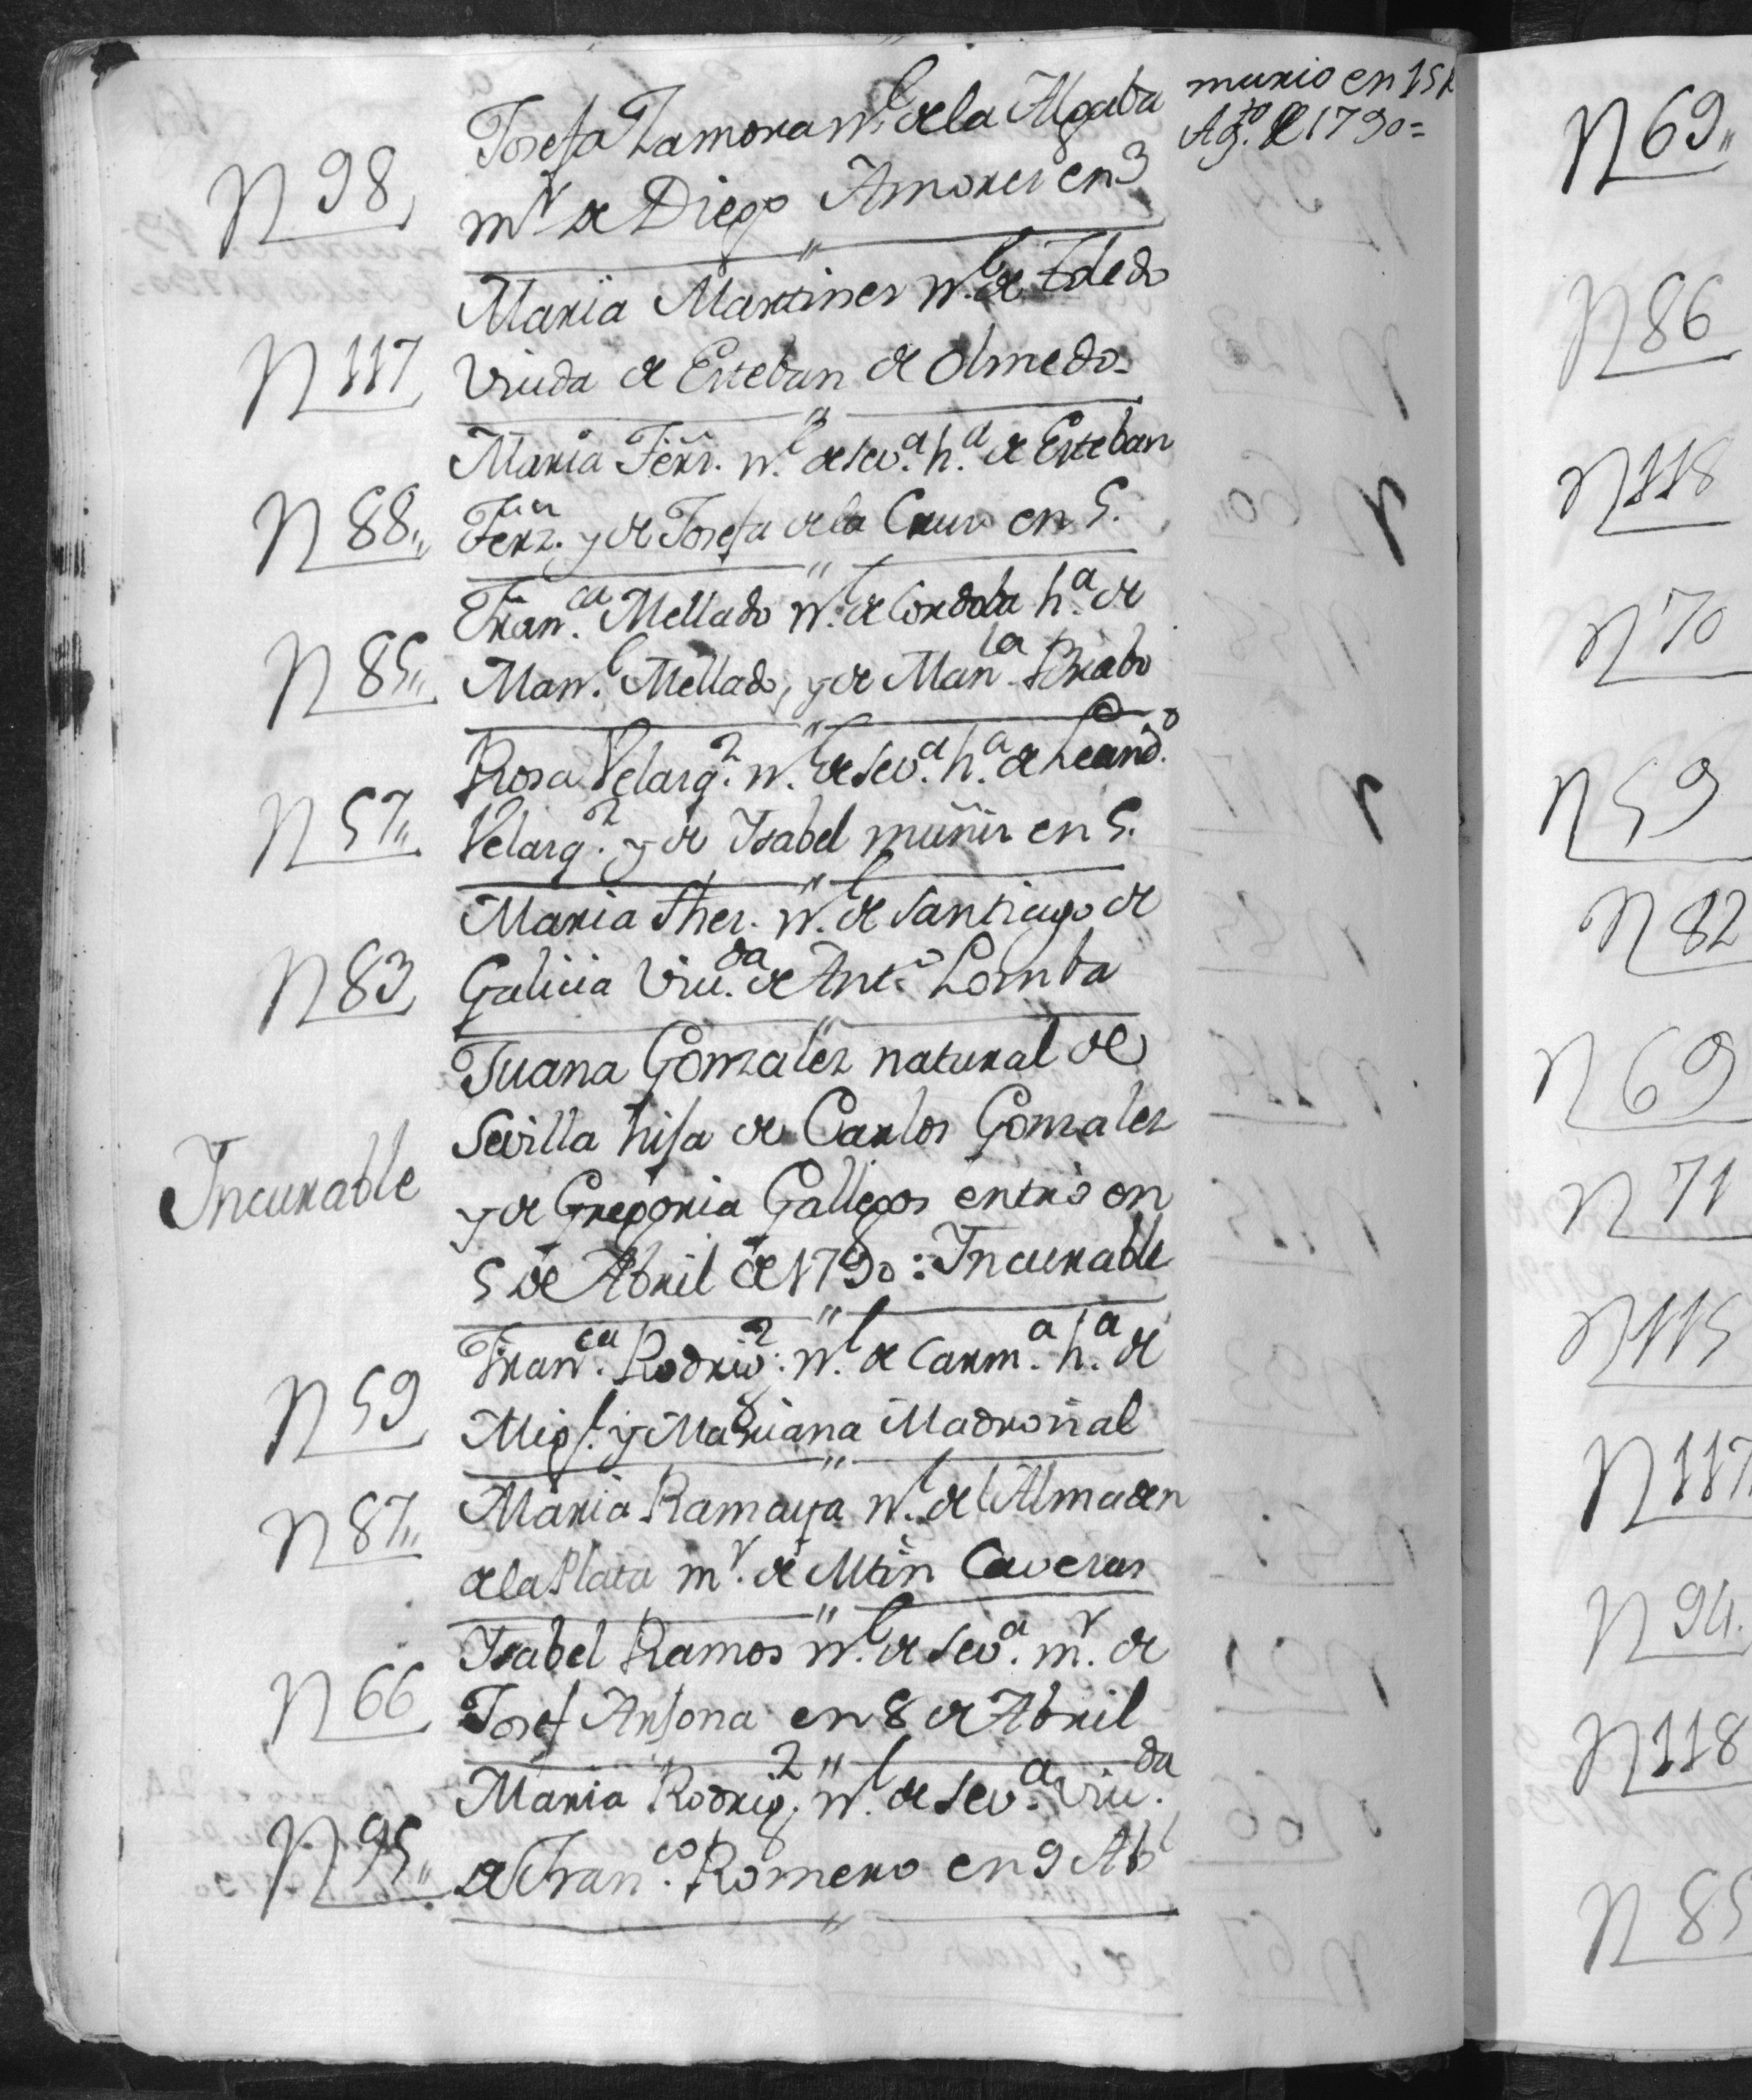 Josefa Zamora n.l de la Algaba
murio en 15 d
Ag.to de 1790=
N 98,
m.r de Diego Amores en 3
Maria Martines n.l de Toledo
N 117,
Viuda de Esteban de Olmedo=
Maria Ferz. n.l de Sev.a h.a de Esteban
N 88,,
Ferz. y de Josefa de la Cruz en 5.
Fran.ca Mellado n.l de Cordoba h.a de
N 85,,
Man.l Mellado, y de Man.la Brabo
Rosa Velarq.z n.l de Sev.a h.a de Leand.o
N 57,,
Velarq.z y de Isabel muñis en 5.
Maria Ther. n.l de Santiago de
N 83,
Galicia Viu.da de Ant.o Lomba
Juana Gonzalez natural de
Sevilla hija de Carlos Gonzalez
Incurable
y de Gregoria Gallegos entró en
5 de Abril de 1790: Incurable
Fran.ca Rodrig.z: n.l de Carm.a h.a de
N 59,
Mig.l y Mariana Madroñal
Maria Ramaya n.l del Almaden
N 87,,
de la Plata m.r de Mtin Caveras
Isabel Ramos n.l de Sev.a m.r de
N 66,
Josef Arjona en 8 de Abril
Maria Rodrig.z n.l de Sev.a Viu.da
N 95,,
de Fran.co Romero en 9 Ab.l
N 69,,
N 86
N 118
N 70
N 59
N 82
N 69
N 71
N 115
N 117
N 94.
N 118
N 85